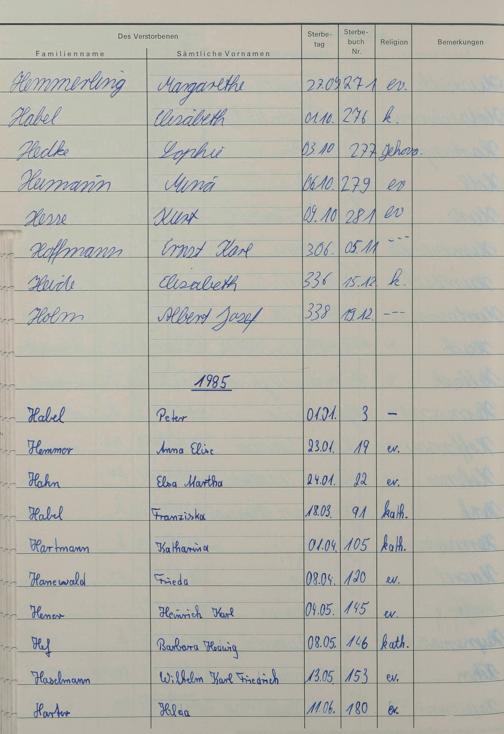 Des Verstorbenen Sterbe-tag Sterbe-buch Nr. Religion Bemerkungen
Familienname Sämtliche Vornamen
Hemmerling Margarethe 27.09 271 ev.
Habel Elisabeth 01.10. 276 k.
Hedke Sophie 03.10 277 Jehova.
Heimann Mina 06.10. 279 ev
Hesse Kurt 09.10 281 ev
Hoffmann Ernst Karl 306. 05.11 ---
Heide Elisabeth 336 15.12 k.
Holm Albert Josef 338 19.12 ---
1985
Habel Peter 01.01. 3 –
Hemmor Anna Elise 23.01. 19 ev.
Hahn Elsa Martha 24.01. 22 ev.
Habel Franziska 18.03 91 kath.
Hartmann Katharina 01.04. 105 kath.
Hanewald Frieda 08.04. 120 ev.
Heinrich Karl 04.05. 145 ev.
Barbara Hedwig 08.05. 146 kath.
Haselmann Wilhelm Karl Friedrich 13.05 153 ev.
Harter Hilda 11.06. 180 ev.